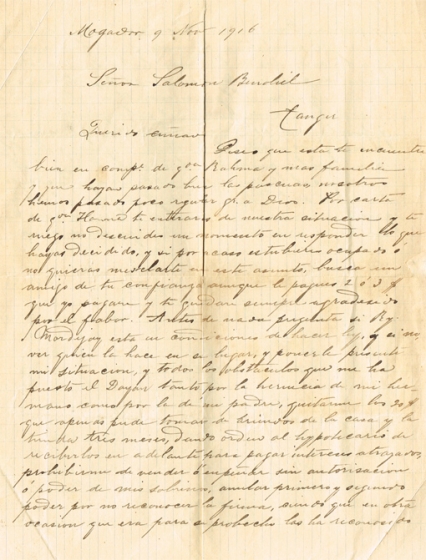 Mogador 9 Nov 1916
Señor Salomon Benoliel
Tanger
Querido cuñado
Deseo que esta te encuentre
bien en compª de gª Rahma y mas familia
y que hayan pasado bien las pascuas, nosotros
hemos pasado poco regular g. a Dios. Por carta
de gª te enteraras de nuestra situacion y te
ruego no descuides un momento en responder lo que
hayas decidido, y si por acaso estubieras ocupado ó
no quieras mezclarte en este asunto, busca un
amigo de tu confianza aunque le pagues 2 ó 3
que yo pagare y te quedar siempre agradecido
por el fabor. Antes de nada pregunta si Rby
Mordejay esta en condiciones de hacer ley, y si no
ver quien la hace en su lugar, y ponerte presente
mi situacion, y todos los obstaculos que me ha
puesto el Dayan tanto por la herencia de mi her
mano como por la de mi padre, quitarme los 30
que apenas pude tomar de de la casa y la
tienda tres meses, dando orden al hypotecario de
recibirlos en adelante para pagar intereses atrazados,
prohibirme de vender ó empeñar sin autorisacion
ó poder de mis sobrinos, anular primero y segundo
poder por no reconocer la firma, cuando que en otra
ocasion que era para su probecho las ha reconocido